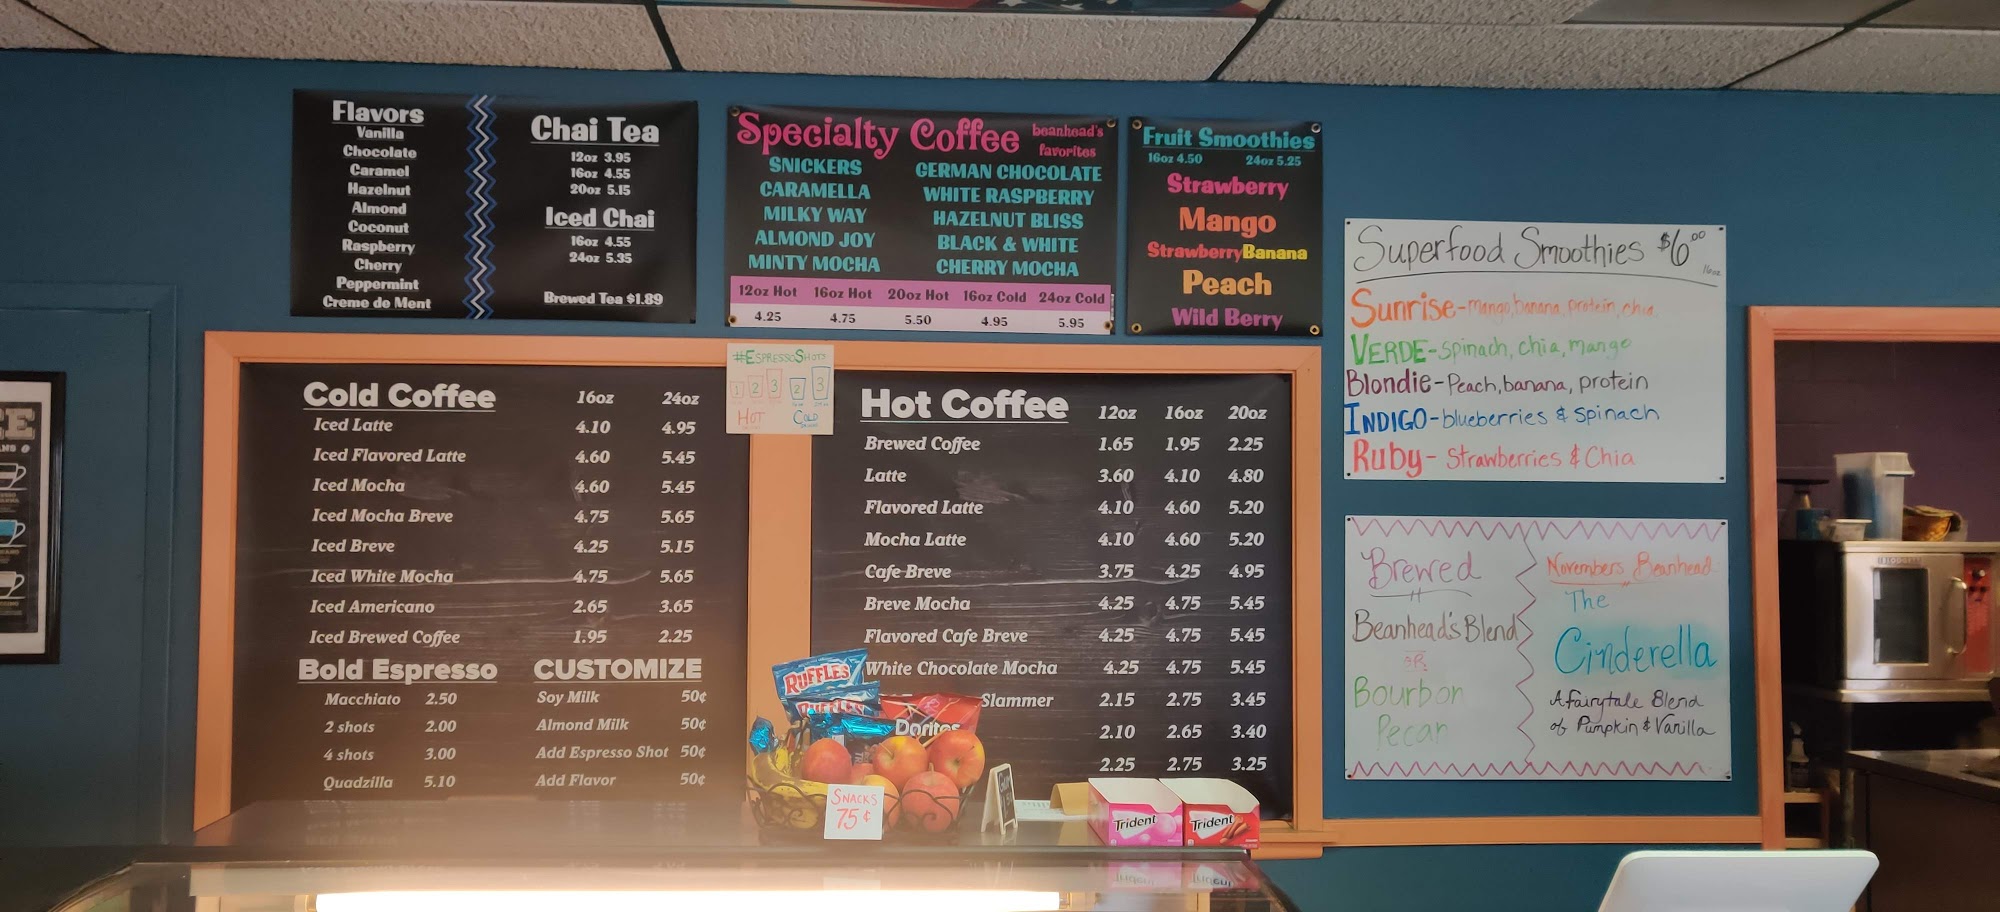 Flavors
Vanilla
Chocolate
Caramel
Hazelnut
Almond
Coconut
Raspberry
Cherry
Peppermint
Creme de Ment
Chai Tea
12oz 3.95
16oz 4.55
20oz 5.15
Iced Chai
16oz 4.55
24oz 5.35
Brewed Tea $1.89
Specialty Coffee beanhead's favorites
SNICKERS
CARAMELLA
MILKY WAY
ALMOND JOY
MINTY MOCHA
GERMAN CHOCOLATE
WHITE RASPBERRY
HAZELNUT BLISS
BLACK & WHITE
CHERRY MOCHA
12oz Hot 16oz Hot 20oz Hot 16oz Cold 24oz Cold
4.25 4.75 5.50 4.95 5.95
Fruit Smoothies
16oz 4.50 24oz 5.25
Strawberry
Mango
StrawberryBanana
Peach
Wild Berry
Superfood Smoothies $6.00 16oz
Sunrise-mango, banana, protein, chia
VERDE-spinach, chia, mango
Blondie-Peach, banana, protein
INDIGO-blueberries & spinach
Ruby-Strawberries & Chia
#ESPRESSOSHOTS
1 2 3 2 3
HOT COLD
Cold Coffee 16oz 24oz
Iced Latte 4.10 4.95
Iced Flavored Latte 4.60 5.45
Iced Mocha 4.60 5.45
Iced Mocha Breve 4.75 5.65
Iced Breve 4.25 5.15
Iced White Mocha 4.75 5.65
Iced Americano 2.65 3.65
Iced Brewed Coffee 1.95 2.25
Bold Espresso
Macchiato 2.50
2 shots 2.00
4 shots 3.00
Quadzilla 5.10
CUSTOMIZE
Soy Milk 50¢
Almond Milk 50¢
Add Espresso Shot 50¢
Add Flavor 50¢
Hot Coffee 12oz 16oz 20oz
Brewed Coffee 1.65 1.95 2.25
Latte 3.60 4.10 4.80
Flavored Latte 4.10 4.60 5.20
Mocha Latte 4.10 4.60 5.20
Cafe Breve 3.75 4.25 4.95
Breve Mocha 4.25 4.75 5.45
Flavored Cafe Breve 4.25 4.75 5.45
White Chocolate Mocha 4.25 4.75 5.45
Slammer 2.15 2.75 3.45
2.10 2.65 3.40
2.25 2.75 3.25
Brewed
Beanhead's Blend
OR
Bourbon
Pecan
Novembers Beanhead
The
Cinderella
A fairytale Blend
of Pumpkin & Vanilla
RUFFLES
RUFFLES
Doritos
SNACKS
75¢
Trident
Trident